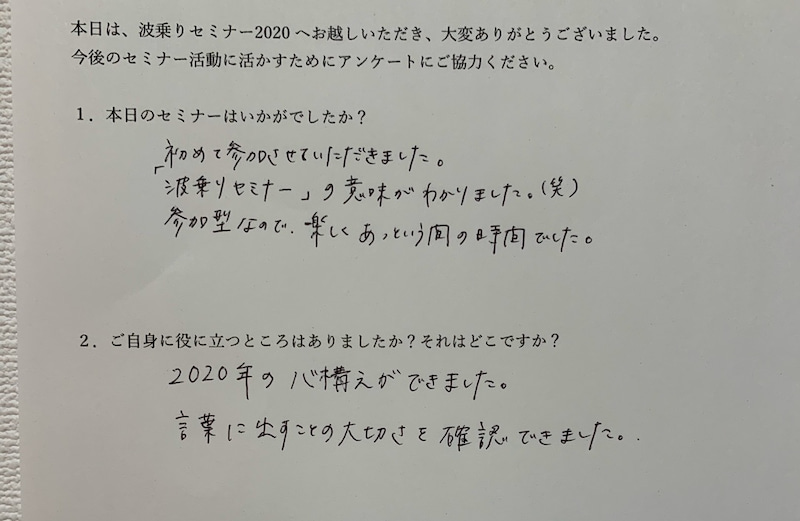 本日は、波乗りセミナー2020へお越しいただき、大変ありがとうございました。
今後のセミナー活動に活かすためにアンケートにご協力ください。
1．本日のセミナーはいかがでしたか？
初めて参加させていただきました。
「波乗りセミナー」の意味がわかりました。(笑)
参加型なので、楽しくあっという間の時間でした。
2．ご自身に役に立つところはありましたか？それはどこですか？
2020年の心構えができました。
言葉に出すことの大切さを確認できました。